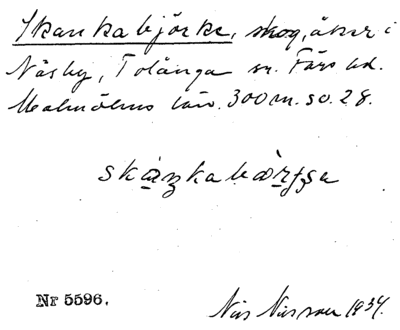 Skankabjörke, skog, åker i
Näsby, Tolånga sn. Färs hd.
Malmöhus län. 300 m. so. 28.
Nr 5596.
Nils Nilsson 1934.